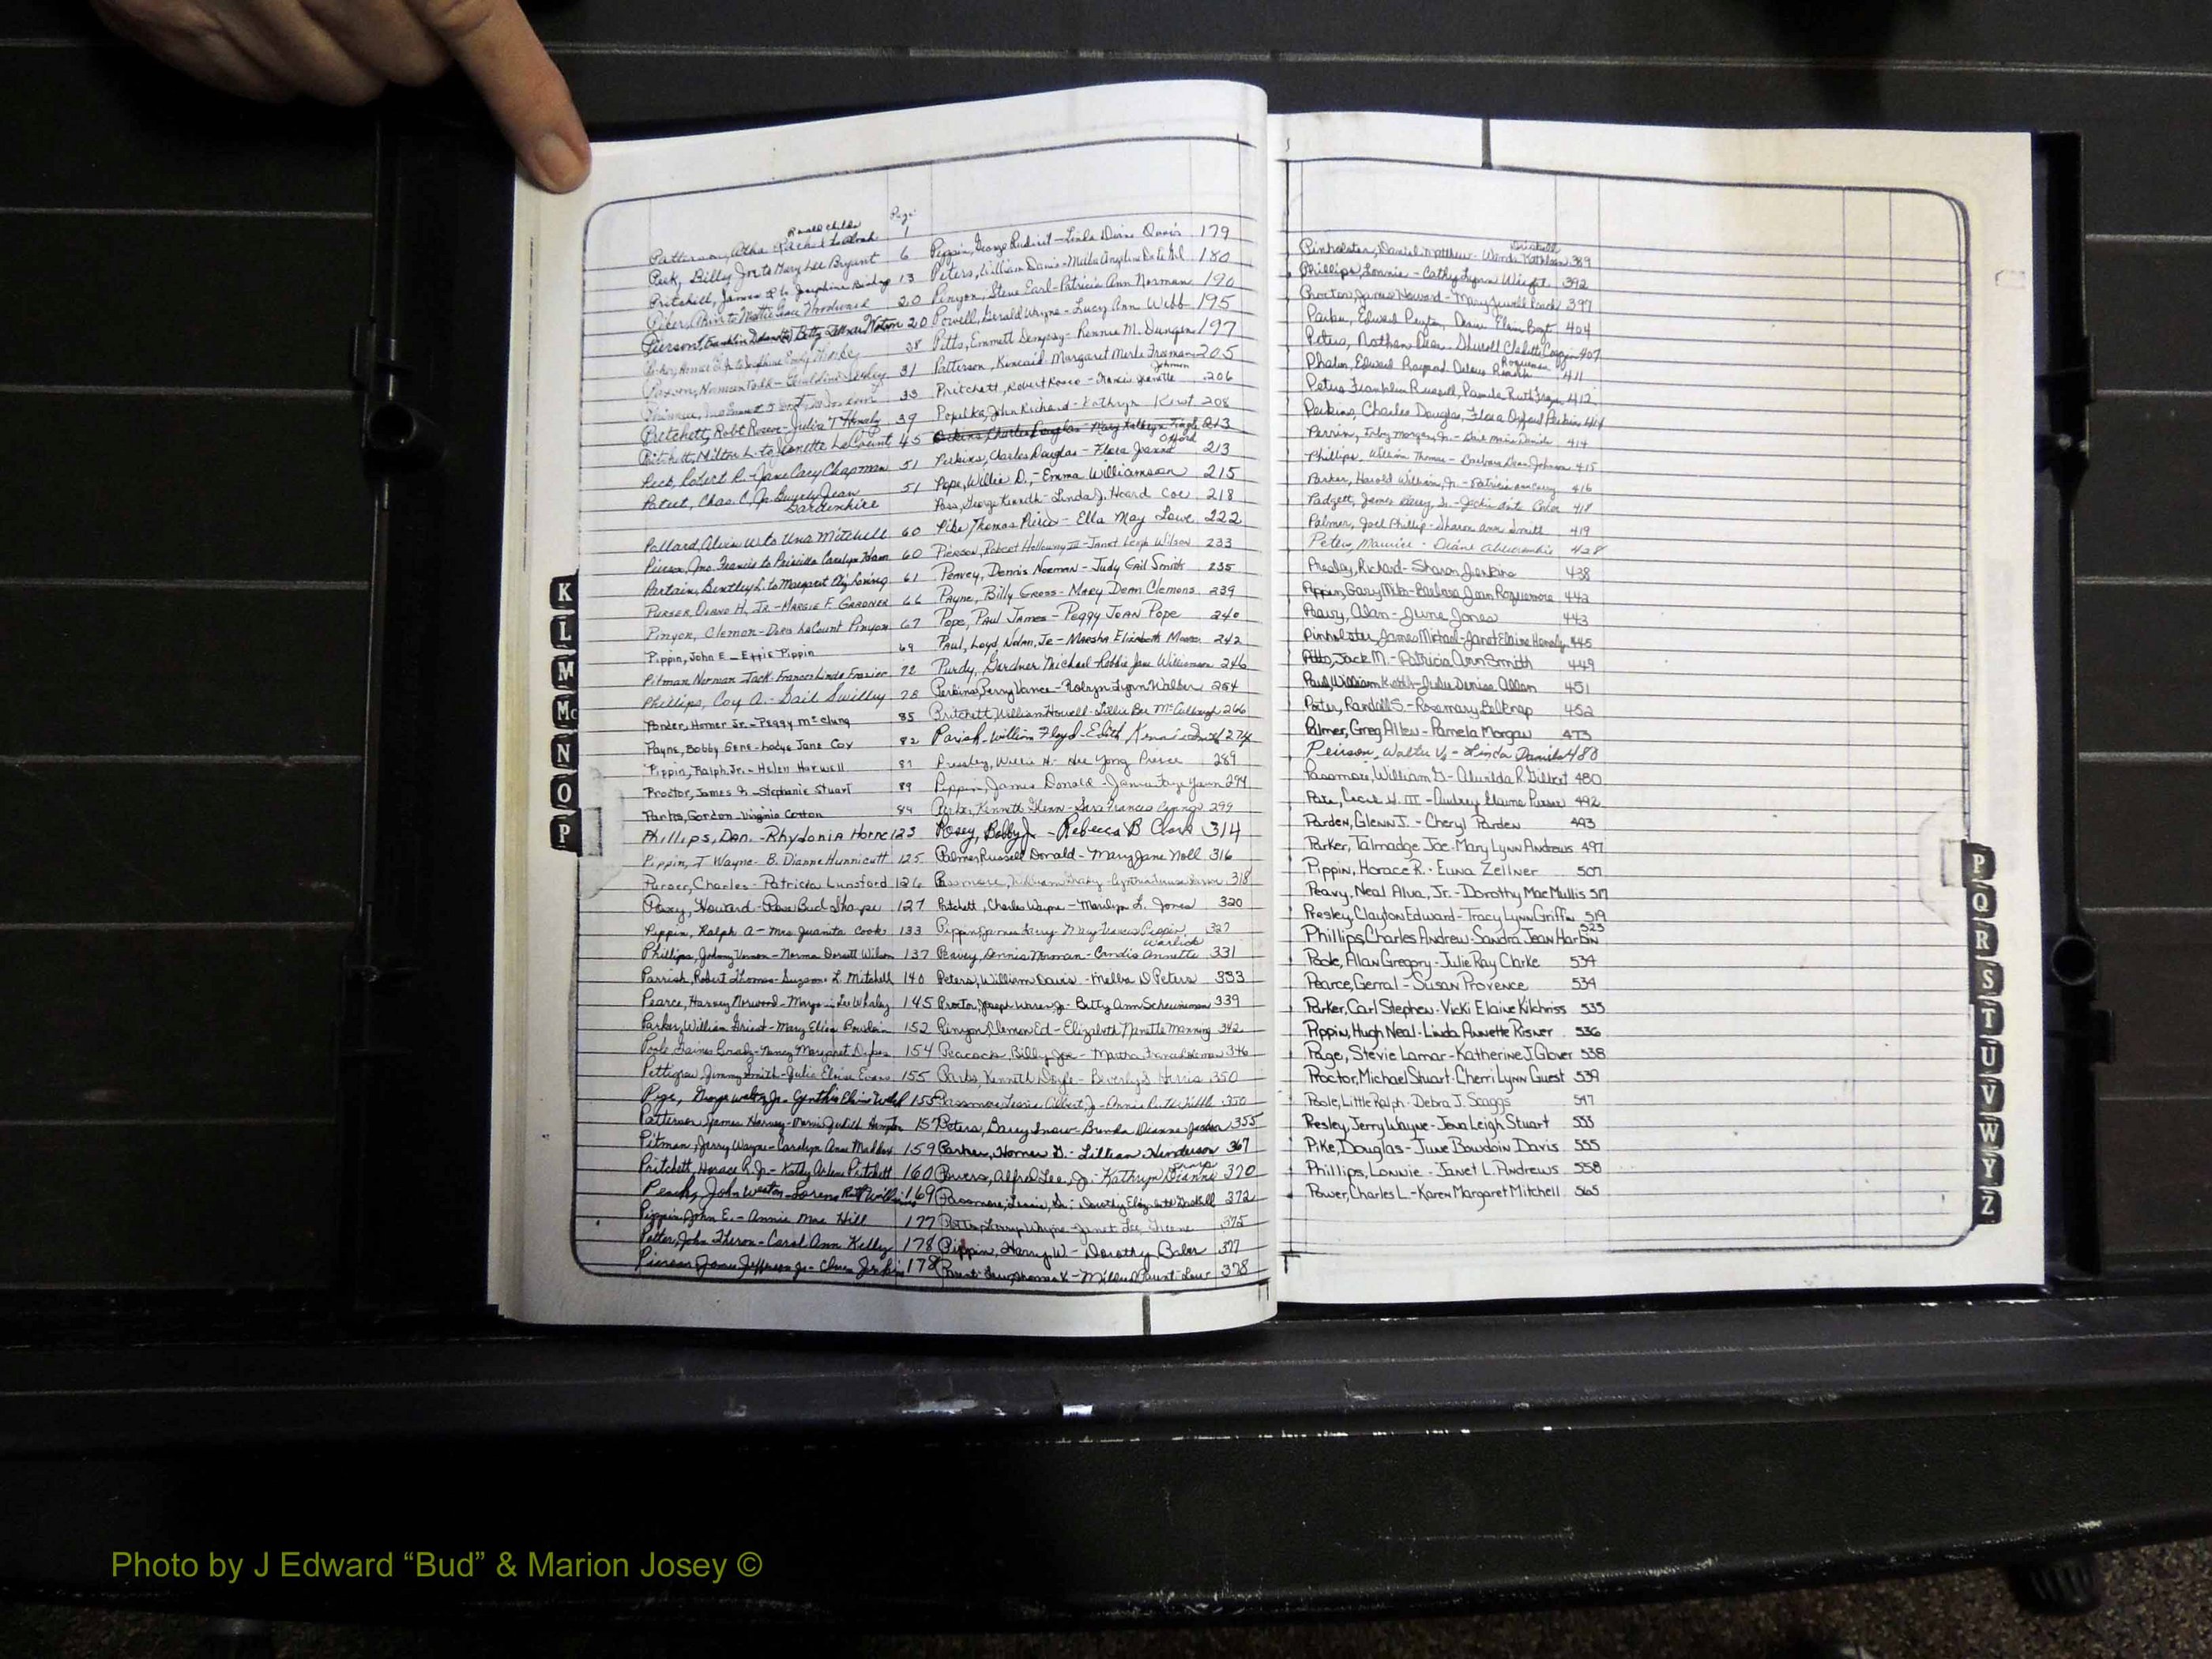 Page
Ronald Childs
Patterson, Atha Rachel to 1
Peek, Billy Joe to Mary Lee Bryant 6
Pritchett, James R to Josephine Bishop 13
Piker, to Mattie Grace Woodward 20
Pierson, Franklin Betty Watson 20
38
Paxson, Norman Todd - Geraldine 31
33
Pritchett, Robt Roscoe - Julia T Handy 39
Pritchett, Milton L. to Jeanette LeCount 45
Peek, Robert R. - Jane Cary Chapman 51
Poteet, Chas. C. Jr. Beverly Jean 51
Gardenhire
Pollard, Alvin W. to Una Mitchell 60
Pierson, Jno. Francis to Priscilla Carolyn Adam 60
Partain, Bentley L. to Margaret Eliz Loving 61
Purser, Duane H., Jr. - Margie F. Gardner 66
Pinyon, Clemon - Doris LeCount Pinyon 67
Pippin, John E - Effie Pippin 69
Pitman Norman Jack - Frances Linda Frazier 72
Phillips, Coy A. - Gail Swilley 78
Ponder, Homer Jr. - Peggy McClung 85
Payne, Bobby Gene - Ladye Jane Cox 82
Pippin, Ralph, Jr. - Helen Harwell 87
Proctor, James - Stephanie Stuart 89
Parks, Gordon - Virginia Cotton 84
Phillips, Dan. - Rhydonia Horne 123
Pippin, T Wayne - B. Dianne Hunnicutt 125
Purser, Charles - Patricia Lunsford 126
Posey, Howard - Rose Bud Sharpe 127
Pippin, Ralph A - Mrs Juanita Cook 133
Phillips, Johnny Vernon - Norma Dorsett Wilson 137
Parrish, Robert Thomas - Suzanne L. Mitchell 140
Pearce, Harvey Norwood - Margie Lee Whaley 145
Parker, William Griest - Mary Eliza Bowdoin 152
Poole Gaines Grady - Nancy Margaret Dykes 154
Pettigrew, Jimmy Smith - Julia Eloise Evans 155
Page, George Walter Jr. - Cynthia Elaine Webb 155
Patterson James Harvey - Marie Judith 157
Pitman, Jerry Wayne - Carolyn Anne Maddox 159
Pritchett, Horace R. Jr. - Kathy Arlene Pritchett 160
John Weston - Lorena Ruth 169
Pippin, John E. - Annie Mae Hill 177
Potter, John Theron - Carol Ann Kelly 178
Pierson James Jefferson Jr. - 178
Pippin, George Rudicil - Linda Diane Davis 179
Peters, William Davis - Melba Angeline 180
Pinyon, Steve Earl - Patricia Ann Norman 190
Powell, Gerald Wayne - Lucy Ann Webb 195
Pitts, Emmett Dempsey - Rennie M. Dungan 197
Patterson, Kincaid - Margaret Merle Freeman 205
Johnson
Pritchett, Robert Rosco - 206
Popelka, John Richard - Kathryn 208
Perkins, Charles Douglas - Mary Kathryn 213
Offord
Perkins, Charles Douglas - Flora Jeanne 213
Pope, Willie D. - Emma Williamson 215
Pass, George Kenneth - Linda J. Heard Coe 218
Pike, Thomas Pierce - Ella May Lowe 222
Pierson, Robert Holloway III - Janet Leigh Wilson 233
Peavey, Dennis Norman - Judy Gail Smith 235
Payne, Billy Gross - Mary Dean Clemons 239
Pope, Paul James - Peggy Jean Pope 240
Paul, Loyd Nolan, Jr - Marsha Elizabeth Moore 242
Purdy, Gardner Michael - Robbie Jane Williamson 246
Perkins, Perry Vance - Robyn Lynn Walker 254
Pritchett, William Howell - Lillie Bee McCullough 266
Parish, William Floyd - Edith 274
Pressley, Willie H. - Hee Yong Pierce 289
Pippin, James Donald - Janice Faye Gunn 294
Parker, Kenneth Glenn - Sara Frances 299
Posey, Bobby J. - Rebecca B Clark 314
Palmer, Russell Donald - Mary Jane Noll 316
Passmore, William Grady - Cynthia 318
Pritchett, Charles Wayne - Marilyn L. Jones 320
Pippin, James Larry - Mary Frances Pippin 327
Warlick
Peavey, Dennis Norman - Candis Annette 331
Peters, William Davis - Melba D Peters 333
Proctor, Joseph Warren, Jr. - Betty Ann Scheuneman 339
Pinyon, Clemon Ed - Elizabeth Nanette Manning 342
Peacock, Billy Joe - Martha Frances 346
Parks, Kenneth Doyle - Beverly S Harris 350
Passmore, Lessie Gilbert, Jr - Annie Ruth Tuttle 350
Peters, Barry Snow - Brenda Dianne Jordan 355
Parker, Homer G. - Lillian Henderson 367
Powers, Alfred Lee, Jr. - Kathryn Dianne 370
Passmore, Lessie, Sr. - Dorothy Elizabeth 372
Potts, Larry Wayne - Janet Lee Greene 375
Pippin, Harry W - Dorothy Baker 377
Thomas K - 378
Driskell
Pinholster, Daniel Matthew - Wanda Kathleen 389
Phillips, Lonnie - Cathy Lynn Wright 392
Procter, James Howard - Mary Jewell Roach 397
Parker, Edward Peyton, Elain 404
Peters, Nathan Dean - Sherell Cladette 407
Roquemore
Phalen, Edward Raymond, Delores 411
Peters Franklin Russell, Pamela Ruth 412
Perkins, Charles Douglas, Flora Offord Perkins 414
Perrin, Irby Morgan, Jr. - Gail Marie Daniels 414
Phillips, William Thomas - Barbara Dean Johnson 415
Parker, Harold William, Jr. - Patricia Ann 416
Padgett, James Sr. - Jackie 418
Palmer, Joel Phillip - Sharon Ann Smith 419
Peters, Maurice - Diane Abercrombie 428
Presley, Richard - Sharon Jenkins 438
Pippin, Gary Milton - Barbara Jean Roquemore 442
Peavy, Alan - June Jones 443
Pinholster, James Michael - Janet Elaine Hensley 445
Pitts, Jack M. - Patricia Ann Smith 449
Paul, William Keith - Julie Denise Allen 451
Porter, Randall S. - Rosemary Belknap 452
Palmer, Greg Allen - Pamela Morgan 473
Peirson, Walter V. - Linda Daniels 480
Passmore, William G - Alwilda R. Gilbert 480
Pate, Cecil H. III - Audrey Elaine Purser 492
Parden, Glenn J. - Cheryl Parden 493
Parker, Talmadge Joe - Mary Lynn Andrews 497
Pippin, Horace R. - Euna Zellner 507
Peavy, Neal Alva, Jr. - Dorothy Mae Mullis 517
Presley, Clayton Edward - Tracy Lynn Griffin 519
Phillips, Charles Andrew - Sandra Jean Harbin 525
Poole, Alan Gregory - Julie Ray Clarke 534
Pearce, Gerral - Susan Provence 534
Parker, Carl Stephen - Vicki Elaine Kilchriss 535
Pippin, Hugh Neal - Linda Annette Risner 536
Page, Stevie Lamar - Katherine J. Glover 538
Proctor, Michael Stuart - Cherri Lynn Guest 539
Poole, Little Ralph - Debra J. Scaggs 547
Presley, Jerry Wayne - Jena Leigh Stuart 553
Pike, Douglas - June Bowdoin Davis 555
Phillips, Lonnie - Janet L. Andrews 558
Power, Charles L. - Karen Margaret Mitchell 565
K
L
M
Mc
N
O
P
P
Q
R
S
T
U
V
W
Y
Z
Photo by J Edward “Bud” & Marion Josey ©